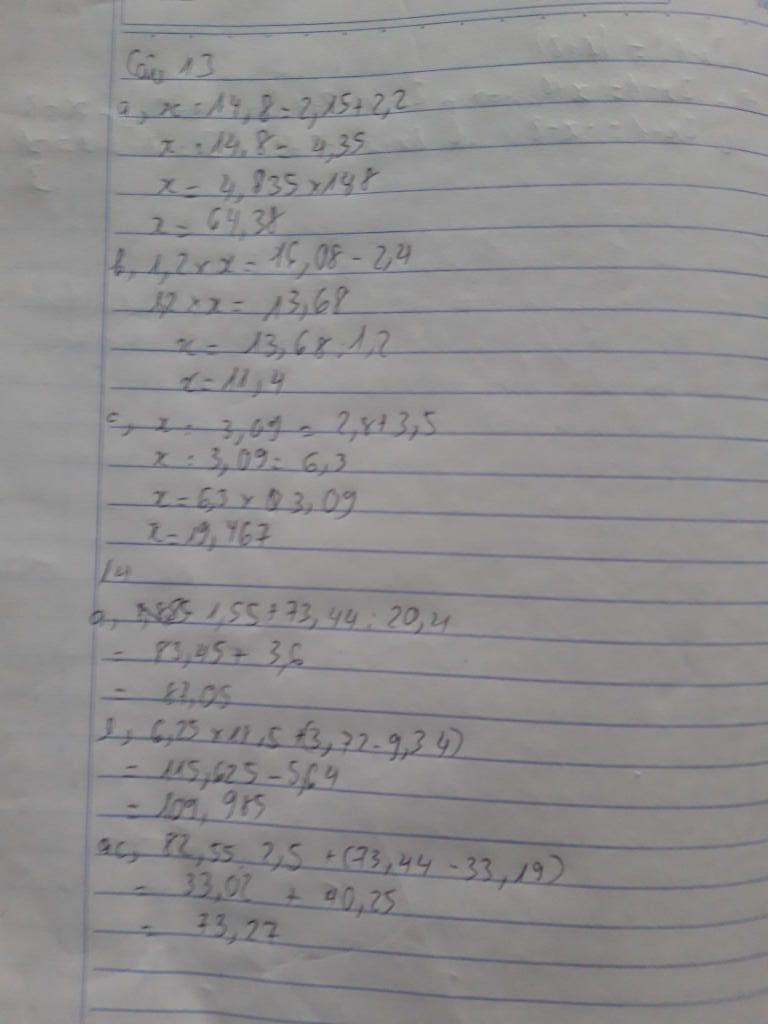 Câu 13
a, x : 14,8 = 2,15 + 2,2
x : 14,8 = 4,35
x = 4,835 x 148
x = 64,38
b, 1,2 x x = 16,08 - 2,4
12 x x = 13,68
x = 13,68 : 1,2
x = 11,4
c, x : 3,09 = 2,8 + 3,5
x : 3,09 = 6,3
x = 6,3 x 3,09
x = 19,467
14
a, 1,55 + 73,44 : 20,4
= 83,45 + 3,6
= 87,05
6,25 x 18,5 + (3,72 - 9,34)
= 115,625 - 5,64
= 109,985
c, 82,55 : 2,5 + (73,44 - 33,19)
= 33,02 + 40,25
= 73,27